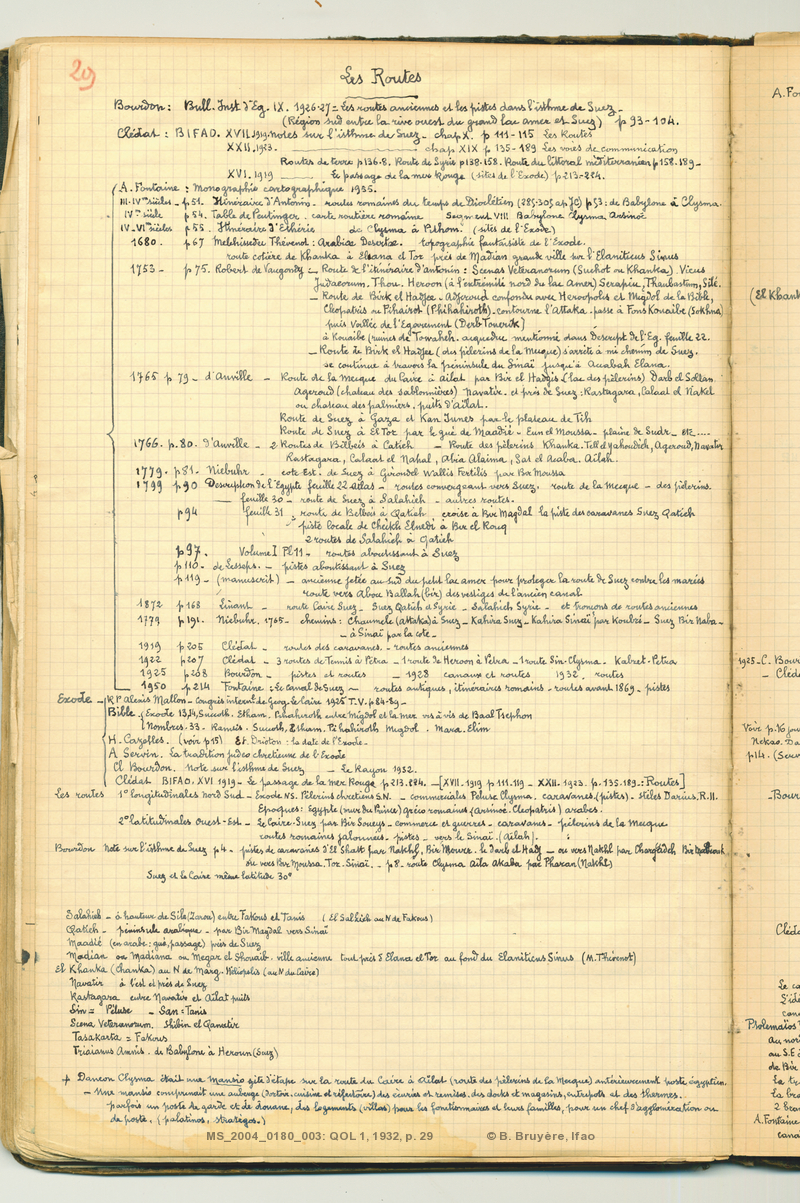 29
Les Routes
Bourdon : Bull. Inst d'Eg. IX. 1926-27 = Les routes anciennes et les pistes dans l'isthme de Suez -
(Région sud entre la rive ouest du grand lac amer et Suez) p 93-104.
Clédat : BIFAO. XVII 1919. notes sur l'isthme de Suez - chap X. p 111-115 Les Routes
XXII. 1923. chap XIX p 135-189 Les voies de communication
Routes de terre p 136.8. Route de Syrie p 138-158. Route du littoral méditerranien p 158.189 -
XVI. 1919 Le passage de la mer Rouge (sites de l'Exode) p 213-224.
A. Fontaine : Monographie cartographique 1955.
III-IVmes siècles - p 51. Itinéraire d'Antonin - routes romaines du temps de Dioclétien (285-305 ap JC) p 53 : de Babylone à Clysma.
IVme siècle p 54. Table de Peutinger. carte routière romaine Segment VIII Babylone Clysma Arsinoé
IV-VIes siècles p 55. Itinéraire d'Ethérie de Clysma à Pithom. (sites de l'Exode)
1680. p 67 Melchisedec Thévenot : Arabiae Desertae. topographie fantaisiste de l'Exode.
route cotière de Khanka à Elsana et Tor près de Madian grande ville sur l'Elaniticus Sinus
1753 - p 75. Robert de Vaugondy - Route de l'itinéraire d'antonin : Scenas Veteranorum (Suchot ou Khanka). Vicus
Judaeorum. Thou. Heroon (à l'extrémité nord du lac Amer) Serapiu, Thaubastum, Silé.
- Route de Birk el Hadjee - Adjeroud confondu avec Heroopolis et Migdol de la Bible,
Cleopatris ou Pihairot (Phihahiroth) - contourne l'Attaka - passe à Fons Kouaibe (Sokhna)
puis Vallée de l'Egarement (Derb Touerik)
à Kouaibe (ruines de Towaheh. acqueduc mentionné dans Descript de l'Eg. feuille 22.
- Route de Birk el Hadjee (des pèlerins de la Mecque) s'arrête à mi chemin de Suez.
se continue à travers la péninsule du Sinaï jusqu'à Acabah Elana.
1765 p 79 - d'Anville - Route de la Mecque du Caire à Ailat par Bir el Hadgis (lac des pèlerins) Darb el Soltan
Ageroud (chateau des sablonnières) Navatir. et près de Suez : Rastagara, Calaat el Nakel
ou chateau des palmiers. puits d'Ailat.
Route de Suez à Gaza et Kan Iunes par le plateau de Tih
Route de Suez à El Tor par le gué de Maadié - Eun el Moussa - plaine de Sudr - etc....
1766. p. 80. d'Anville - 2 Routes de Bilbeis à Catieh - Route des pèlerins Khanka. Tell el yahoudieh, Ageroud, Navatir
Rastagara, Calaat el Nahal, Abia Alaima, Sat el Acaba. Ailah.
1779. p 81. Niebuhr - cote Est. de Suez à Girondel Wallis Fertilis par Bir Moussa
1799 p 90 Description de l'Egypte feuille 22 Atlas - routes convergeant vers Suez. route de la Mecque - des pèlerins.
feuille 30 - route de Suez à Salahieh - autres routes.
p 94 feuille 31 route de Belbeis à Qatieh croise à Bir Magdal la piste des caravanes Suez Qatieh
piste locale de Cheikh Elnebi à Bir el Rouq
2 routes de Salahieh à Qatieh
p 97. Volume I Pl 11. routes aboutissant à Suez
p 110 - de Lesseps. - pistes aboutissant à Suez
p 119 - (manuscrit) - ancienne jetée au sud du petit lac amer pour proteger la route de Suez contre les marées
route vers Abou Ballah (bir) des vestiges de l'ancien canal
1872 p 168 Linant - route Caire Suez - Suez Qatieh et Syrie - Salahieh Syrie - et tronçons de routes anciennes
1779 p 191. Niebuhr. 1765 - chemins : Chaumele (Attaka) à Suez - Kahira Suez - Kahira Sinaï par Koubré - Suez Bir Naba -
- à Sinaï par la cote -
1919 p 205 Clédat - routes des caravanes. - routes anciennes
1922 p 207 Clédat - 3 routes de Tennis à Petra - 1 route de Heroon à Petra - 1 route Sin-Clysma - Kabret-Petra
1925 p 208 Bourdon - pistes et routes - 1928 canaux et routes 1932. routes
1950 p 214 Fontaine : Le canal de Suez - routes antiques, itinéraires romains - routes avant 1869 - pistes
Exode - R.P. Alexis Mallon - Congrès internat de Geog. Le Caire 1925 T.V. p 84-89 -
Bible Exode 13,14, Succoth. Etham. Pihahiroth entre Migdol et la mer vis à vis de Baal Tsephon
Nombres. 33 - Ramsès. Succoth, Etham. Pi hahiroth Migdol. Mara. Elim
H. Cazelles. (voir p 15) Et. Drioton : la date de l'Exode -
A. Servin. La tradition judeo chretienne de l'Exode
Cl Bourdon. Note sur l'isthme de Suez - Le Rayon 1932.
Clédat BIFAO. XVI 1919 - Le passage de la mer Rouge p 213.224. - [XVII - 1919 p 111.119 - XXII. 1923. p. 135.189 : Routes]
Les routes 1° longitudinales Nord Sud - Exode NS. Pèlerins chrétiens S.N. - commerciales Peluse Clysma. caravanes (pistes). - Stèles Darius. R.II.
Epoques : Egypte (mur du Prince) gréco romaines (Arsinoé. Cleopatris) arabes.
2° latitudinales Ouest-Est - Le Caire Suez par Bir Soueys - commerce et guerres - caravanes - pèlerins de la Mecque
routes romaines jalonnées. pistes - vers le Sinaï. (Ailah).
Bourdon Note sur l'isthme de Suez p 4 - pistes de caravanes d'El Shatt par Nakhl, Bir Mower. le darb el Hadj - ou vers Nakhl par Charafideh Bir
ou vers Bir Moussa. Tor. Sinaï. - p 8 - route Clysma Aila Akaba par Pharan (Nakhl)
Suez et le Caire même latitude 30°
Salahieh - à hauteur de Sile (Zarou) entre Fakous et Tanis (El Salhieh au N de Fakous)
Qatieh - péninsule arabique - par Bir Magdal vers Sinaï
Maadié (en arabe : gué, passage) près de Suez
Madian ou Madiana ou Megar el Shouaib. ville ancienne tout près d'Elana et Tor au fond du Elaniticus Sinus (M. Thévenot)
El Khanka (Chanka) au N de Marg. Héliopolis (au N du Caire)
Navatir à l'est et près de Suez
Rastagara entre Navatir et Ailat puits
Sin = Péluse - San : Tanis
Scena Veteranorum. Shibin el Qanatir
Tasakarta = Fakous
Traianus Amnis. de Babylone à Heroun (Suez)
+ Daneon Clysma était une mansio gite d'étape sur la route du Caire à Ailat (route des pèlerins de la Mecque) antérieurement poste égyptien.
- Une mansio comprenait une auberge (dortoir. cuisine et réfectoire) des écuries et remises. des docks et magasins, entrepots et des thermes.
parfois un poste de garde et de douane, des logements (villas) pour les fonctionnaires et leurs familles, pour un chef d'agglomération ou
de poste. (palatinos, stratèges.)
A. Fon
(El Khank
1925 - C. Bour
- Cléd
Voir p. 16
Nekao. Da
p 14. (Serv
- Bour
Cléd
Le ca
L'idé
can
Ptolemaïos
au nor
au S.E
de Bir
La br
2 bra
A. Fontaine
cana
MS_2004_0180_003: QOL 1, 1932, p. 29 © B. Bruyère, Ifao